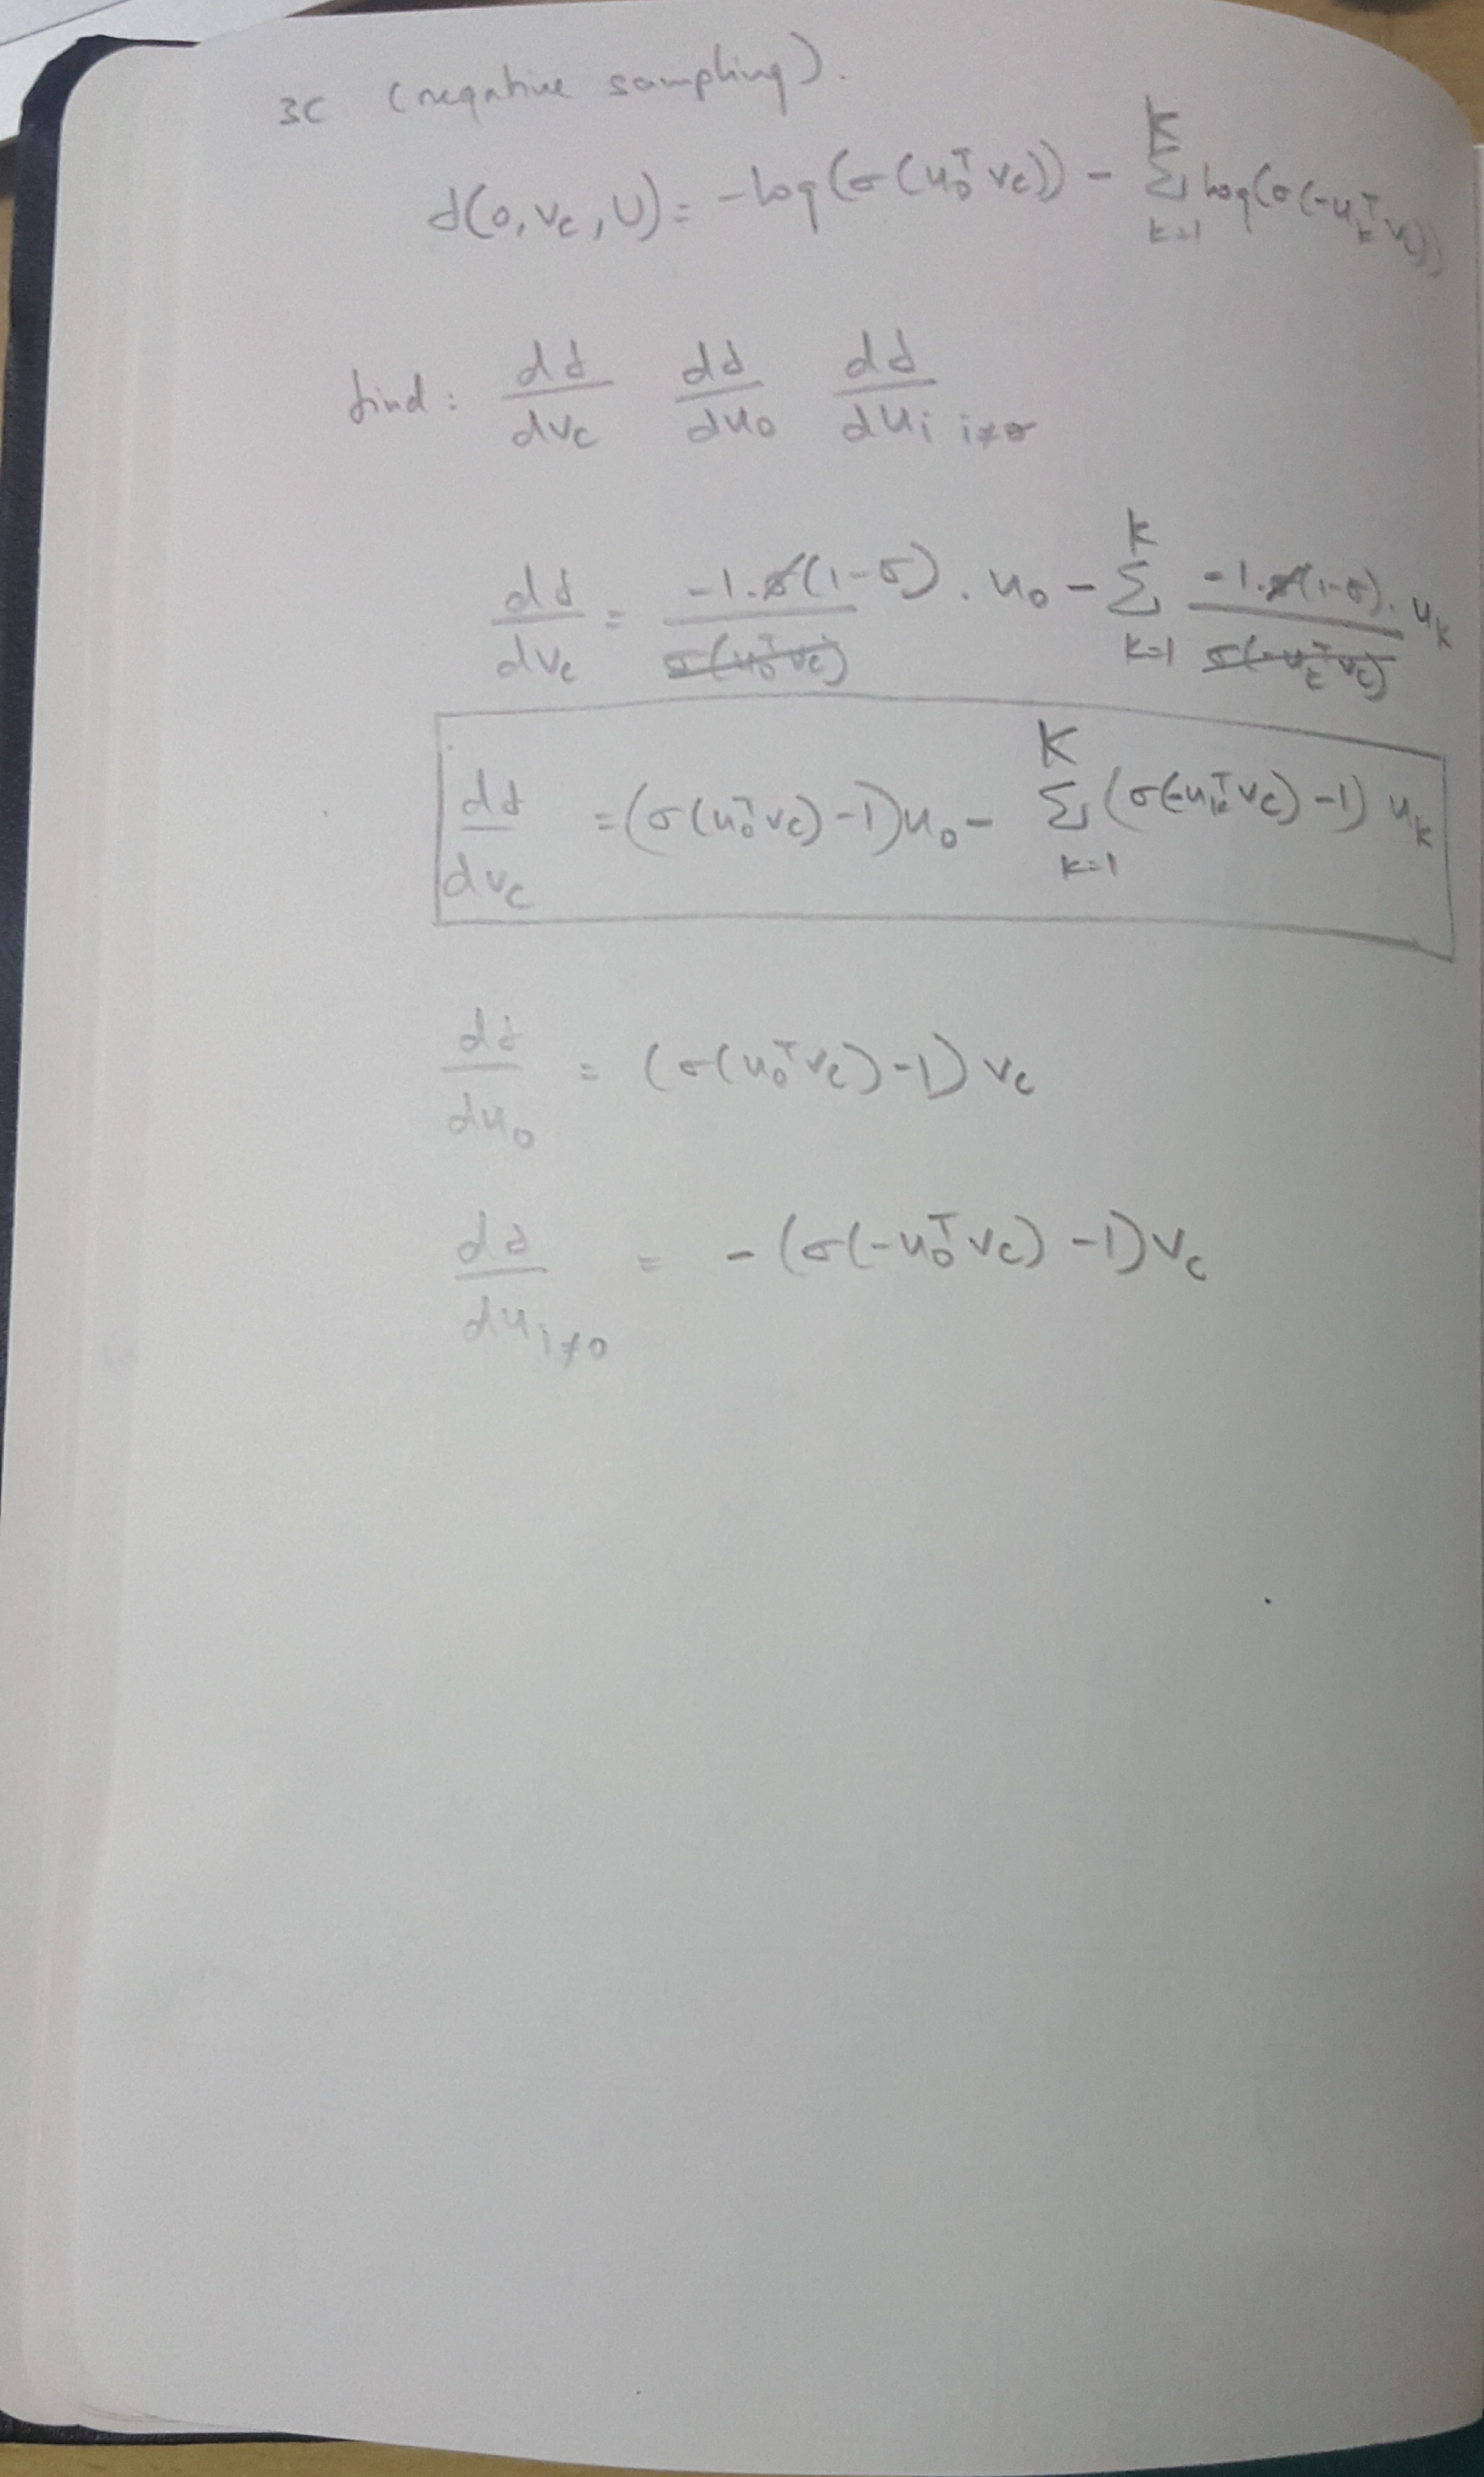 3c (negative sampling).
J(o, v_c, U) = -log(σ(u_o^T v_c)) - Σ_{k=1}^{K} log(σ(-u_k^T v_c))
find: dJ/dv_c dJ/du_o dJ/du_i i≠o
dJ/dv_c = -1.σ(1-σ)/σ(u_o^T v_c) . u_o - Σ_{k=1}^{K} -1.σ(1-σ)./σ(-u_k^T v_c) u_k
dJ/dv_c = (σ(u_o^T v_c) -1)u_o - Σ_{k=1}^{K} (σ(-u_k^T v_c) -1) u_k
dJ/du_o = (σ(u_o^T v_c) -1) v_c
dJ/du_{i≠o} = - (σ(-u_o^T v_c) -1) v_c